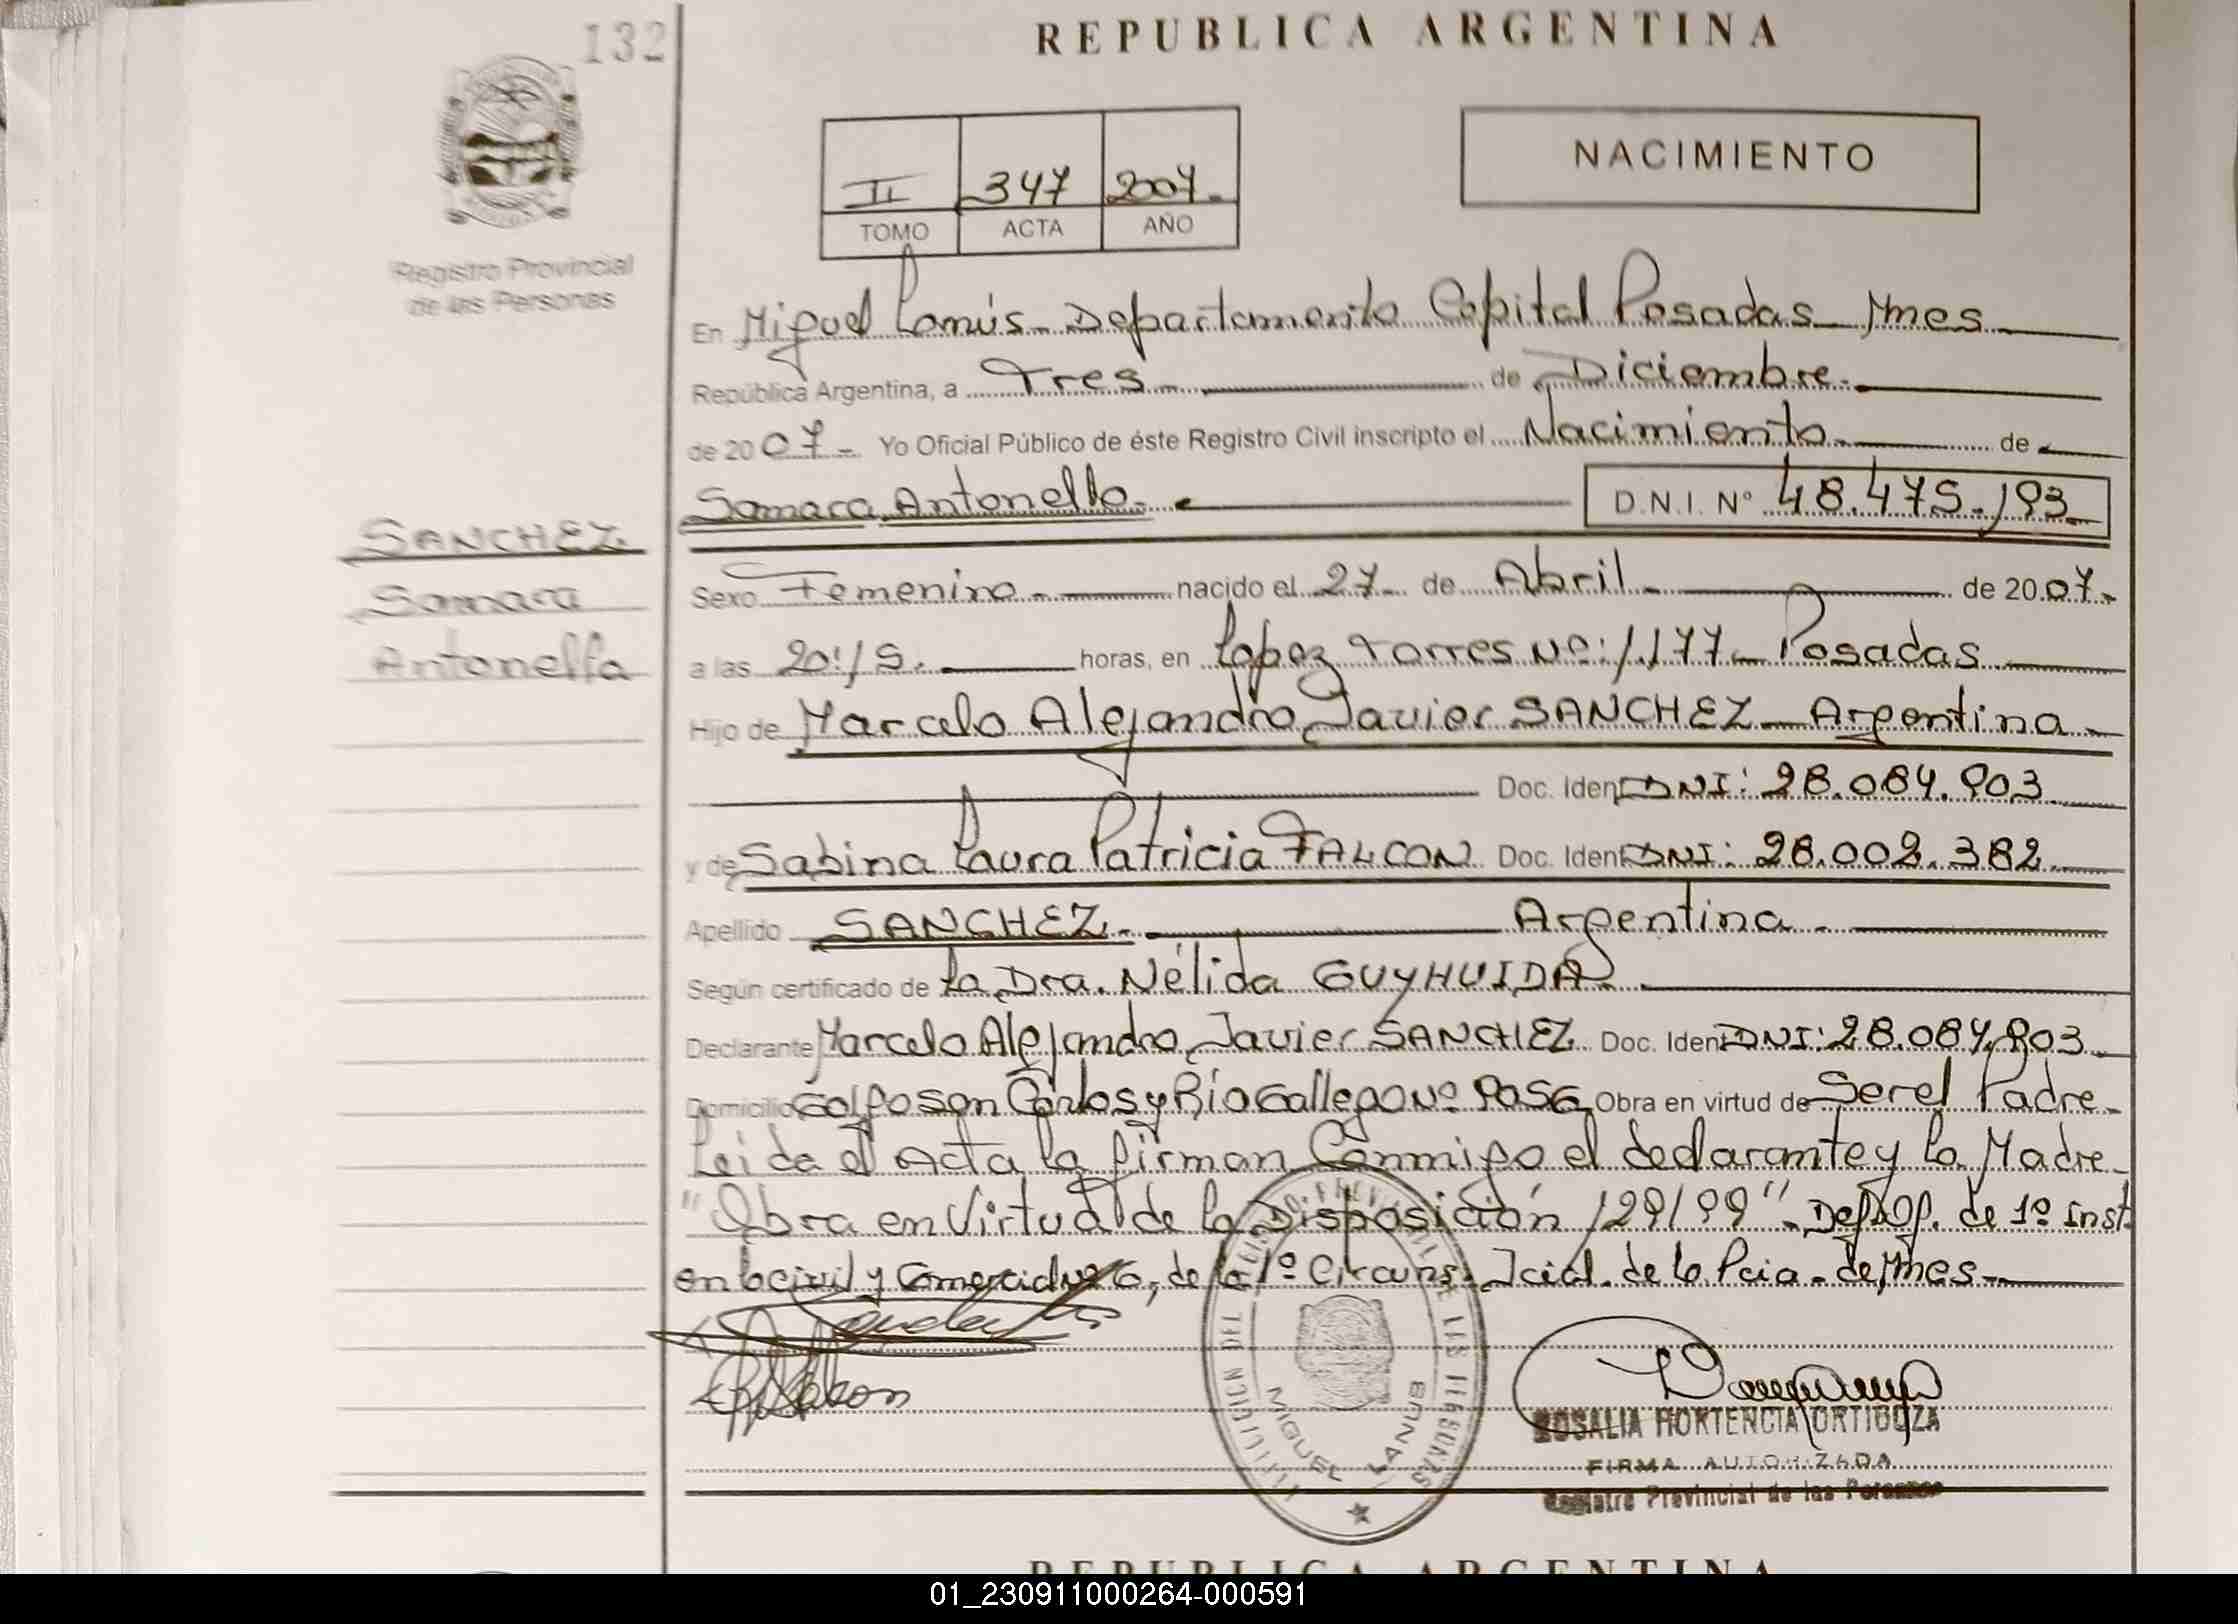 132
REPUBLICA ARGENTINA
II 347 2007.
TOMO ACTA AÑO
NACIMIENTO
Registro Provincial
de las Personas
En Miguel Lanús - Departamento Capital Posadas - Mnes
República Argentina, a Tres de Diciembre.
de 2007 - Yo Oficial Público de éste Registro Civil inscripto el Nacimiento de
Samara Antonella. D.N.I. Nº 48.475.193
SANCHEZ
Samara
Antonella
Sexo Femenino. nacido el 27 de Abril de 2007.
a las 20:15. horas, en Lopez Torres Nº: 1.177 - Posadas
Hijo de Marcelo Alejandro Javier SANCHEZ - Argentina
Doc. Ident. DNI: 28.084.903
y de Sabina Laura Patricia FALCON Doc. Ident. DNI: 28.002.382
Apellido SANCHEZ. Argentina.
Según certificado de La Dra. Nélida
Declarante Marcelo Alejandro Javier SANCHEZ Doc. Ident. DNI: 28.084.903
Domicilio Golfo San Carlos y Río Gallego Nº Obra en virtud de Ser el Padre.
Leida el Acta la firman Conmigo el declarante y la Madre.
"Obra en Virtud de la Disposición 129/99" - de 1º Inst.
en lo civil y Comercial Nº 6, de la 1º Circuns. Jcial. de la Pcia. de Mnes
MIGUEL LANUS
ROSALIA HORTENCIA ORTIGOZA
FIRMA AUTORIZADA
Registro Provincial de las Personas
REPUBLICA ARGENTINA
01_230911000264-000591